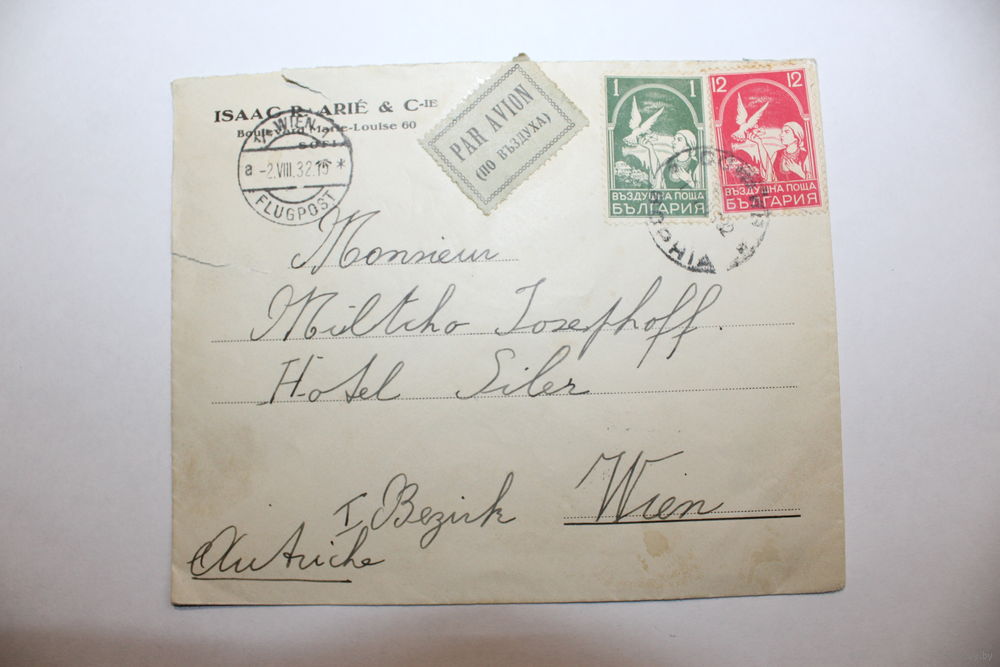 ISAAC R. ARIÉ & C-IE
Boulevard Marie-Louise 60
SOFI
WIEN
a -2.VIII.32.16 *
FLUGPOST
PAR AVION
(ПО ВЪЗДУХА)
1 1
ВЪЗДУШНА ПОЩА
БЪЛГАРИЯ
12 12
ВЪЗДУШНА ПОЩА
БЪЛГАРИЯ
Monsieur
Miltcho Josephoff.
Hotel Siler
I Bezirk Wien
Autriche